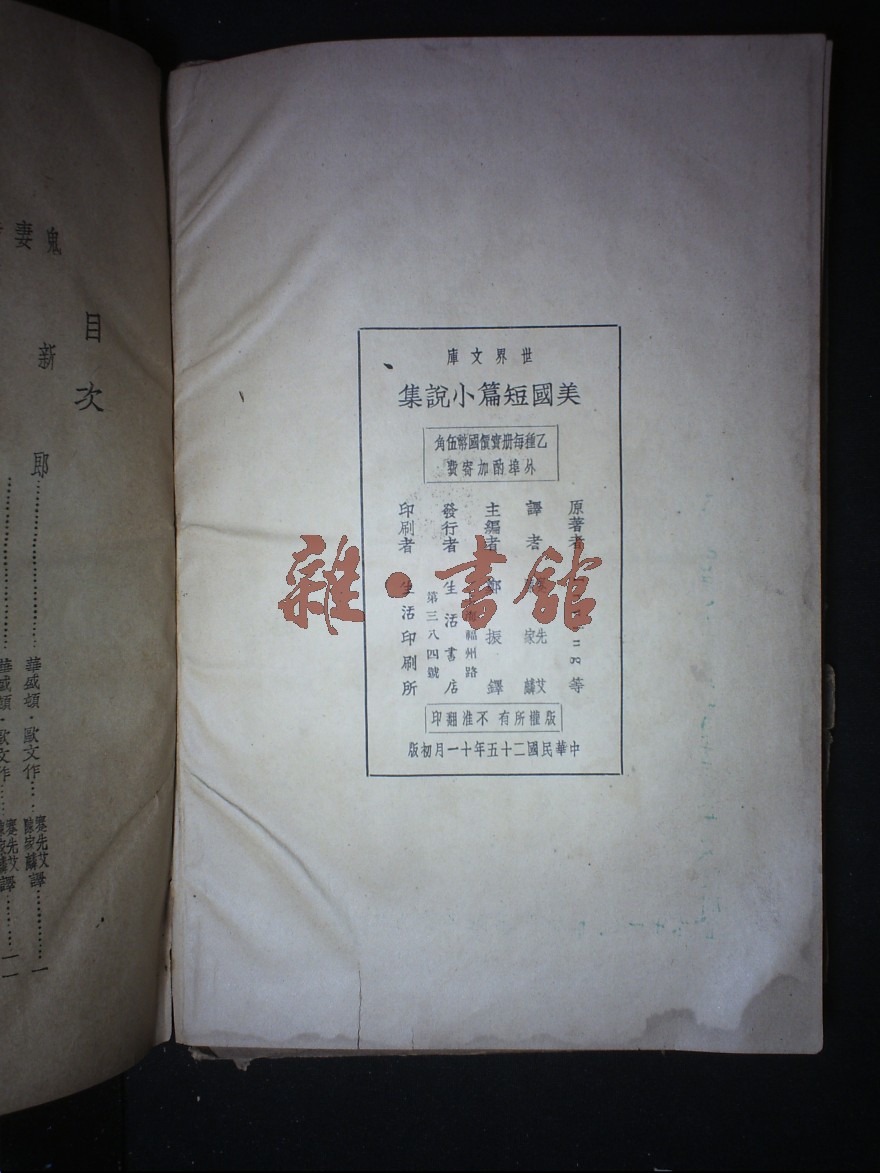 世界文庫
美國短篇小說集
乙種每册實價國幣伍角
外埠酌加寄費
原著者 等
譯者 先艾 家麟
主編者 鄭振鐸
發行者 生活書店
福州路
第三八四號
印刷者 生活印刷所
版權所有 不准翻印
中華民國二十五年十一月初版
雜·書館
目次
鬼新郎 華盛頓·歐文作 蹇先艾 陳家麟 譯 一
妻 華盛頓·歐文作 蹇先艾 陳家麟 譯